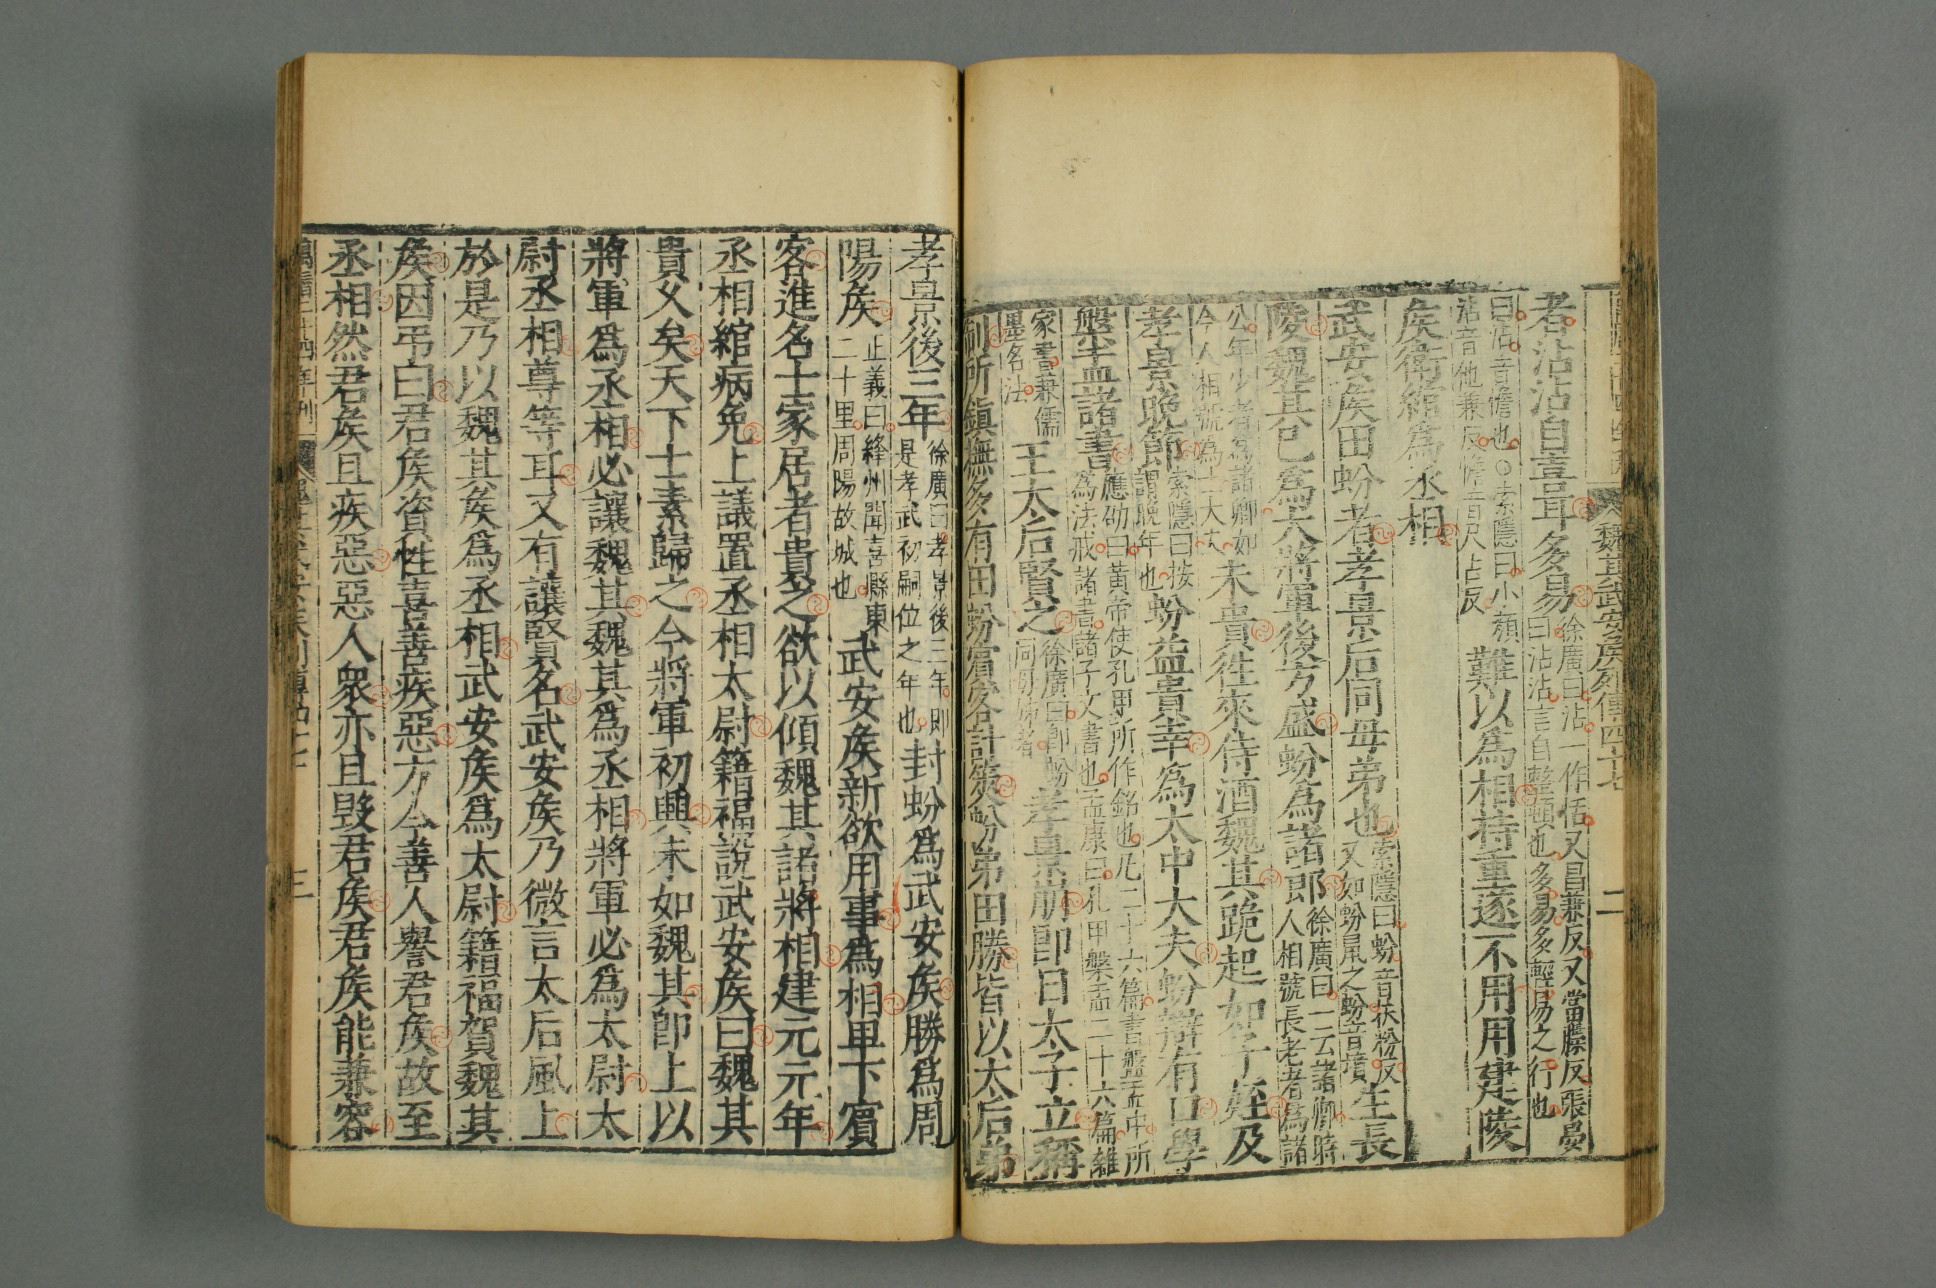 魏其武安矦列傳四十七 二
者沾沾自喜耳多易
徐廣曰沾一作恬又昌兼反又當牒反張晏
曰沾沾言自整頓也多易多輕易之行也
曰沾音襜也○索隱曰小顏
沾音他兼反襜音尺占反
難以爲相持重遂不用用建陵
矦衛綰爲丞相
武安矦田蚡者孝景后同母弟也
索隱曰蚡音扶粉反
又如蚡鼠之蚡音墳
生長
陵魏其已爲大將軍後方盛蚡爲諸郎
徐廣曰一云諸卿時
人相號長老者爲諸
公年少者爲諸卿如
今人相號為士大夫
未貴徃來侍酒魏其跪起如子姪及
孝景晚節
索隱曰按
謂晚年也
蚡益貴幸爲太中大夫蚡辯有口學
盤盂諸書
應劭曰黃帝使孔甲所作銘也凡二十六篇書盤盂中所
爲法戒諸書諸子文書也孟康曰孔甲槃盂二十六篇雜
家書兼儒
墨名法
王太后賢之
徐廣曰即蚡
同母姊者
孝景崩即日太子立稱
制所鎮撫多有田蚡賓客計筴蚡弟田勝皆以太后弟
孝景後三年
徐廣曰孝景後三年即
是孝武初嗣位之年也
封蚡爲武安矦勝爲周
陽矦
正義曰絳州聞喜縣東
二十里周陽故城也
武安矦新欲用事爲相卑下賓
客進名士家居者貴之欲以傾魏其諸將相建元元年
丞相綰病免上議置丞相太尉籍福說武安矦曰魏其
貴久矣天下士素歸之今將軍初興未如魏其即上以
將軍爲丞相必讓魏其魏其爲丞相將軍必爲太尉太
尉丞相尊等耳又有讓賢名武安矦乃微言太后風上
於是乃以魏其矦爲丞相武安矦爲太尉籍福賀魏其
矦因弔曰君矦資性喜善疾惡方今善人譽君矦故至
丞相然君矦且疾惡惡人衆亦且毀君矦君矦能兼容